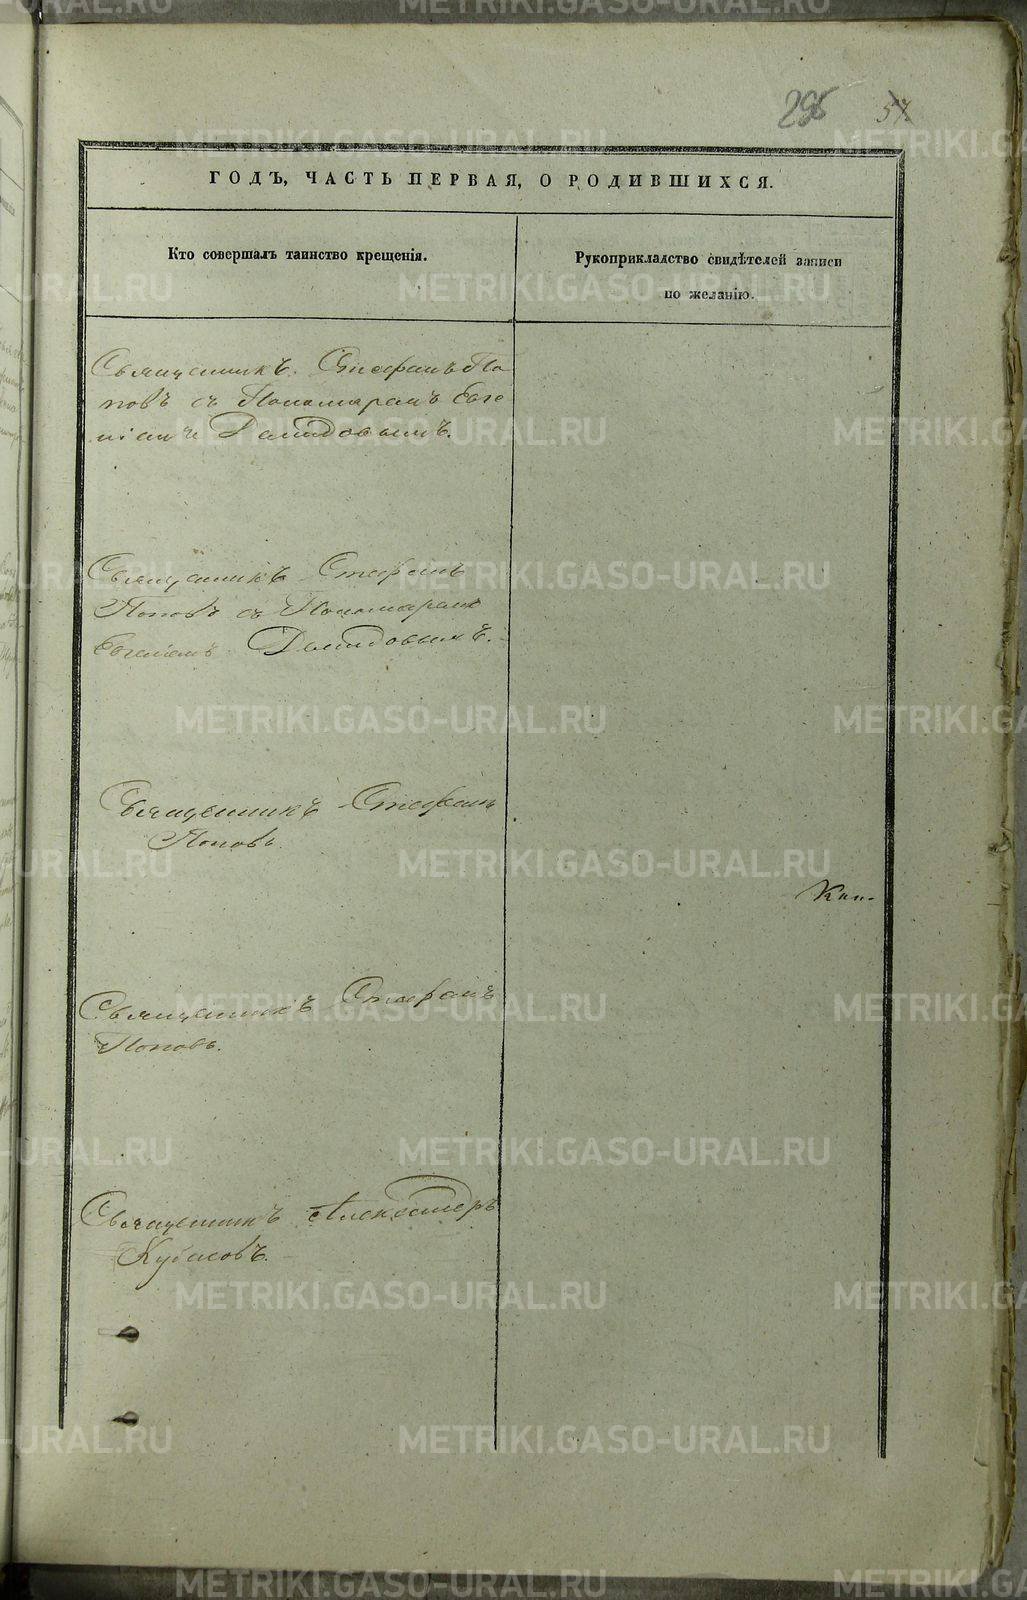 286 57
ГОДЪ, ЧАСТЬ ПЕРВАЯ, О РОДИВШИХСЯ.
Кто совершалъ таинство крещенія.
Рукоприкладство свидѣтелей записи
по желанію.
Священникъ Стефанъ По
повъ съ Пономаремъ Евге
ніемъ Демидовымъ.
Священникъ Стефанъ
Поповъ съ Пономаремъ
Евгеніемъ Демидовымъ.
Священникъ Стефанъ
Поповъ.
Священникъ Стефанъ
Поповъ.
Священникъ Александръ
Кубасовъ.
METRIKI.GASO-URAL.RU